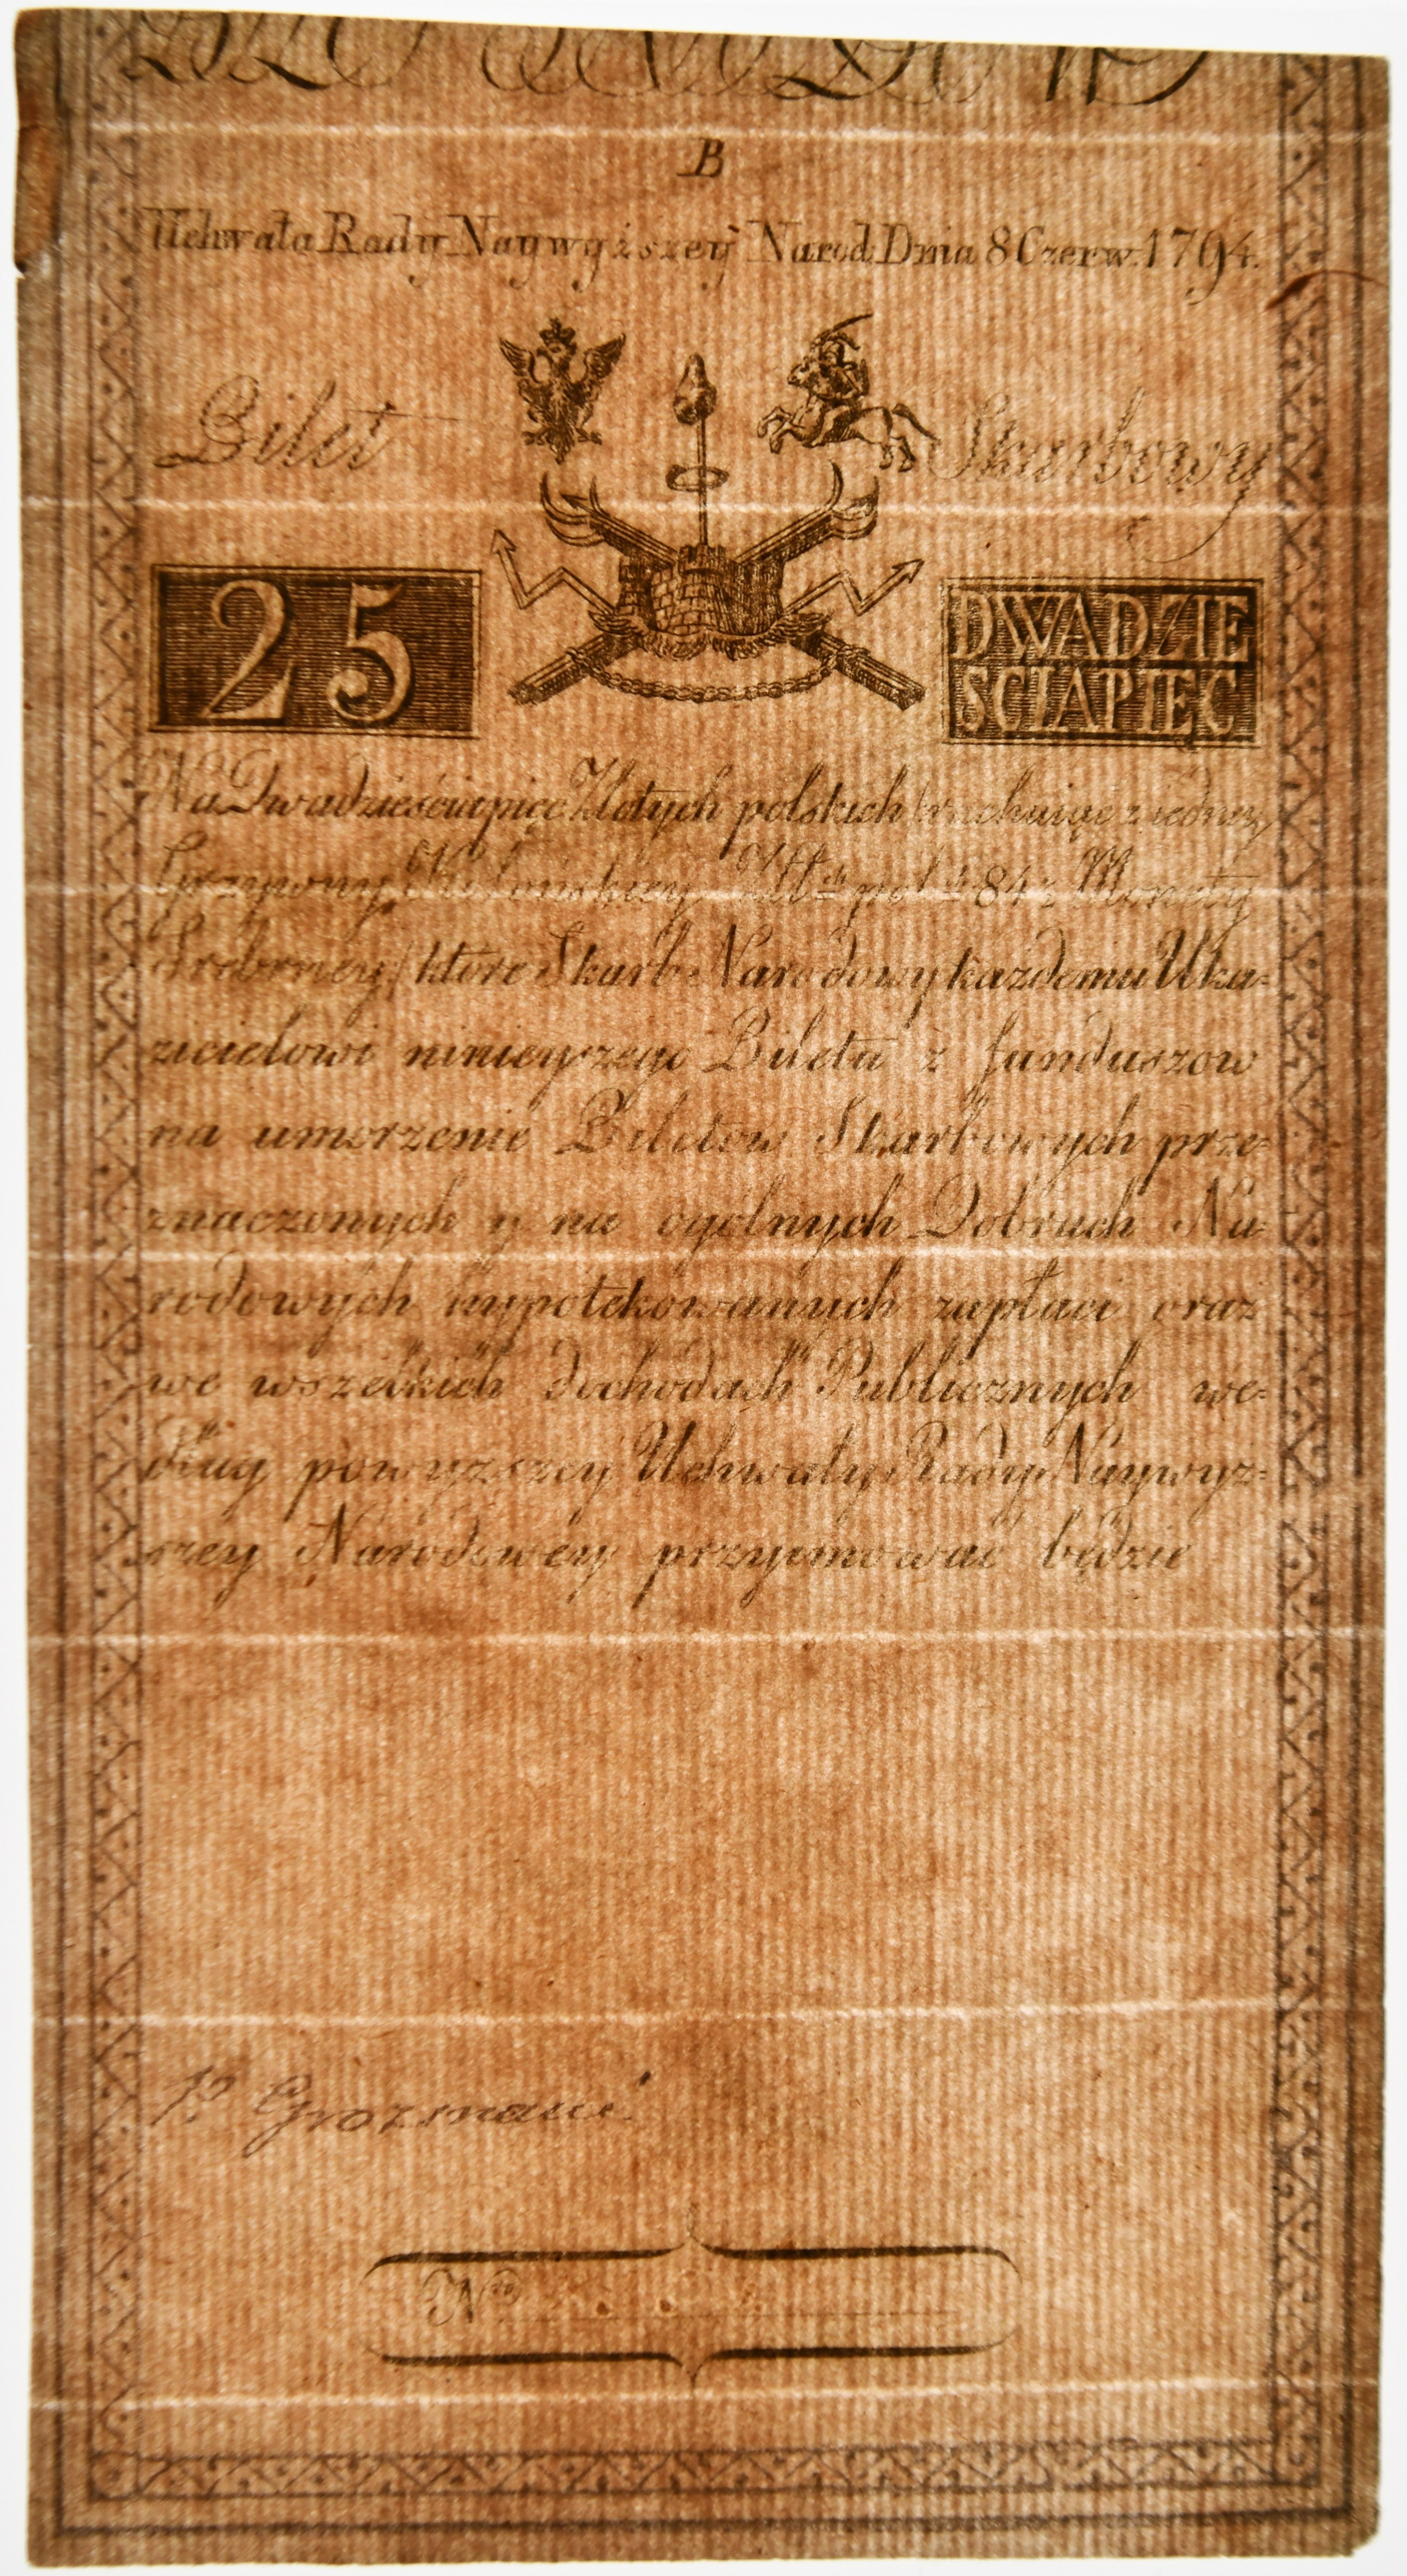 B
Uchwała Rady Naywyższey Narod: Dnia 8 Czerw. 1794.
Bilet Skarbowy
25 DWADZIE
SCIAPIĘC
Na Dwadzieściapięć Złotych polskich (rachuiąc z iedney
Grzywny Kolońskiey Złł: pol: 84: Monety
Srebrney) które Skarb Narodowy każdemu Uka=
zicielowi ninieyszego Biletu z funduszow
na umorzenie Biletow Skarbowych prze=
znaczonych y na ogólnych Dobrach Na=
rodowych hypotekowanych zapłaci oraz
we wszelkich dochodach Publicznych we=
dług powyższey Uchwały Rady Naywyż=
szey Narodowey przyimować będzie
N<sup>ro</sup>